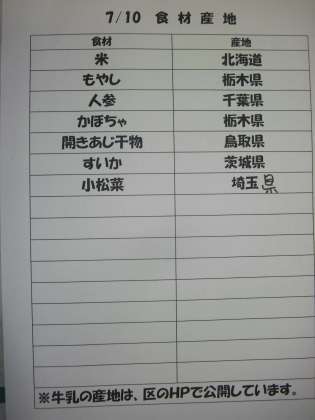 7/10 食材産地
食材 産地
米 北海道
もやし 栃木県
人参 千葉県
かぼちゃ 栃木県
開きあじ干物 鳥取県
すいか 茨城県
小松菜 埼玉県
※牛乳の産地は、区のHPで公開しています。